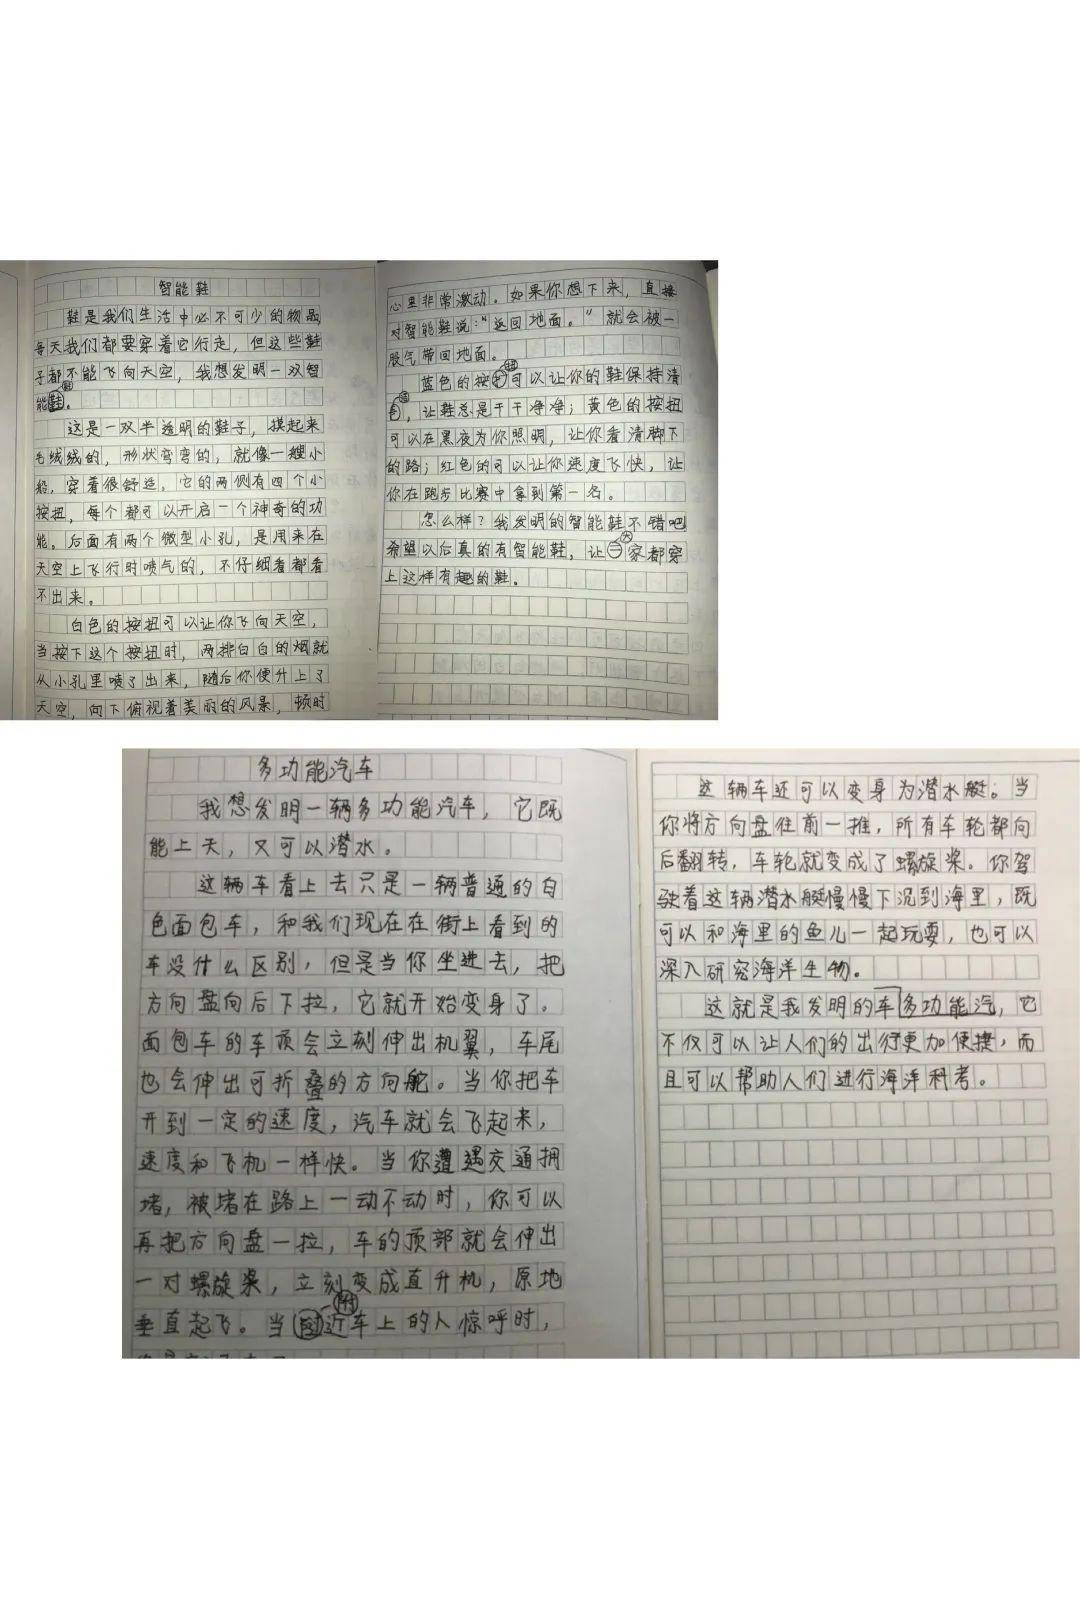 智能鞋
鞋是我们生活中必不可少的物品,
每天我们都要穿着它行走，但这些鞋
子都不能飞向天空，我想发明一双智
能鞋。
这是一双半透明的鞋子，摸起来
毛绒绒的，形状弯弯的，就像一艘小
船，穿着很舒适。它的两侧有四个小
按扭，每个都可以开启一个神奇的功
能。后面有两个微型小孔，是用来在
天空上飞行时喷气的，不仔细看都看
不出来。
白色的按扭可以让你飞向天空，
当按下这个按扭时，两排白白的烟就
从小孔里喷了出来，随后你便升上了
天空，向下俯视着美丽的风景，顿时
心里非常激动。如果你想下来，直接
对智能鞋说：“返回地面。”就会被一
股气带回地面。
蓝色的按扭可以让你的鞋保持清
洁，让鞋总是干干净净；黄色的按扭
可以在黑夜为你照明，让你看清脚下
的路；红色的可以让你速度飞快，让
你在跑步比赛中拿到第一名。
怎么样？我发明的智能鞋不错吧
希望以后真的有智能鞋，让大家都穿
上这样有趣的鞋。
多功能汽车
我想发明一辆多功能汽车，它既
能上天，又可以潜水。
这辆车看上去只是一辆普通的白
色面包车，和我们现在在街上看到的
车没什么区别，但是当你坐进去，把
方向盘向后下拉，它就开始变身了。
面包车的车顶会立刻伸出机翼，车尾
也会伸出可折叠的方向舵。当你把车
开到一定的速度，汽车就会飞起来，
速度和飞机一样快。当你遭遇交通拥
堵，被堵在路上一动不动时，你可以
再把方向盘一拉，车的顶部就会伸出
一对螺旋桨，立刻变成直升机，原地
垂直起飞。当附近车上的人惊呼时，
这辆车还可以变身为潜水艇。当
你将方向盘往前一推，所有车轮都向
后翻转，车轮就变成了螺旋桨。你驾
驶着这辆潜水艇慢慢下沉到海里，既
可以和海里的鱼儿一起玩耍，也可以
深入研究海洋生物。
这就是我发明的车多功能汽，它
不仅可以让人们的出行更加便捷，而
且可以帮助人们进行海洋科考。